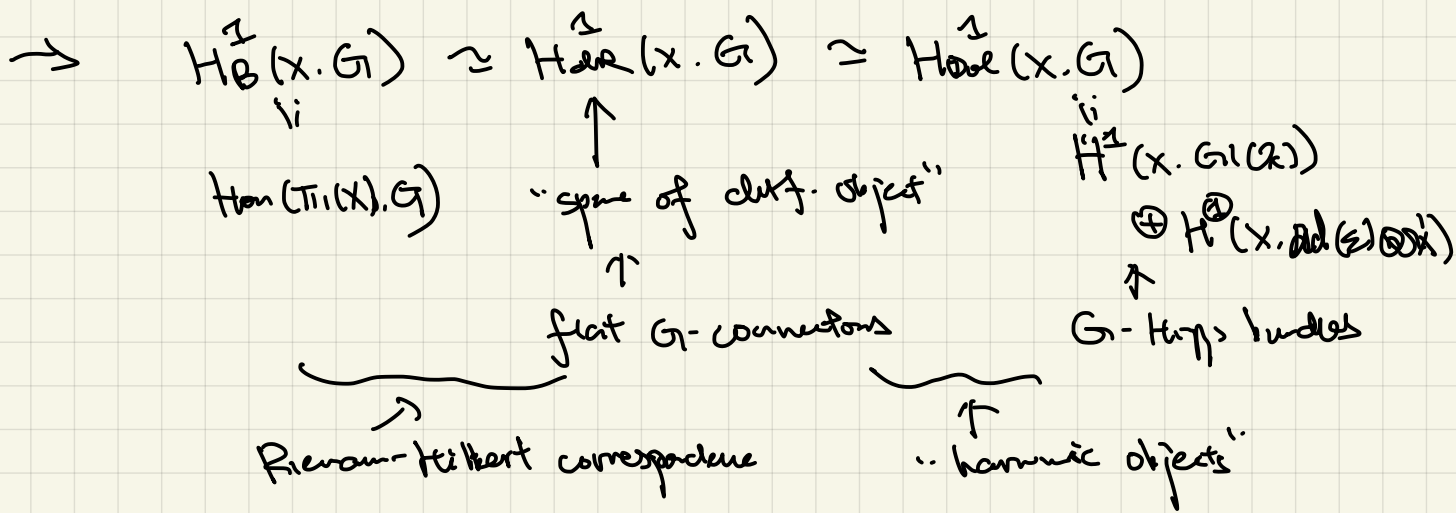 → H¹_B(X.G) ≃ H¹_dR(X.G) ≃ H¹_Dol(X.G)
Hom(π₁(X),G) "space of diff. object" H¹(X.
⊕ H⁰(X.ad(ε)⊗
flat G-connections G-Higgs bundles
Riemann-Hilbert correspondence "harmonic objects"